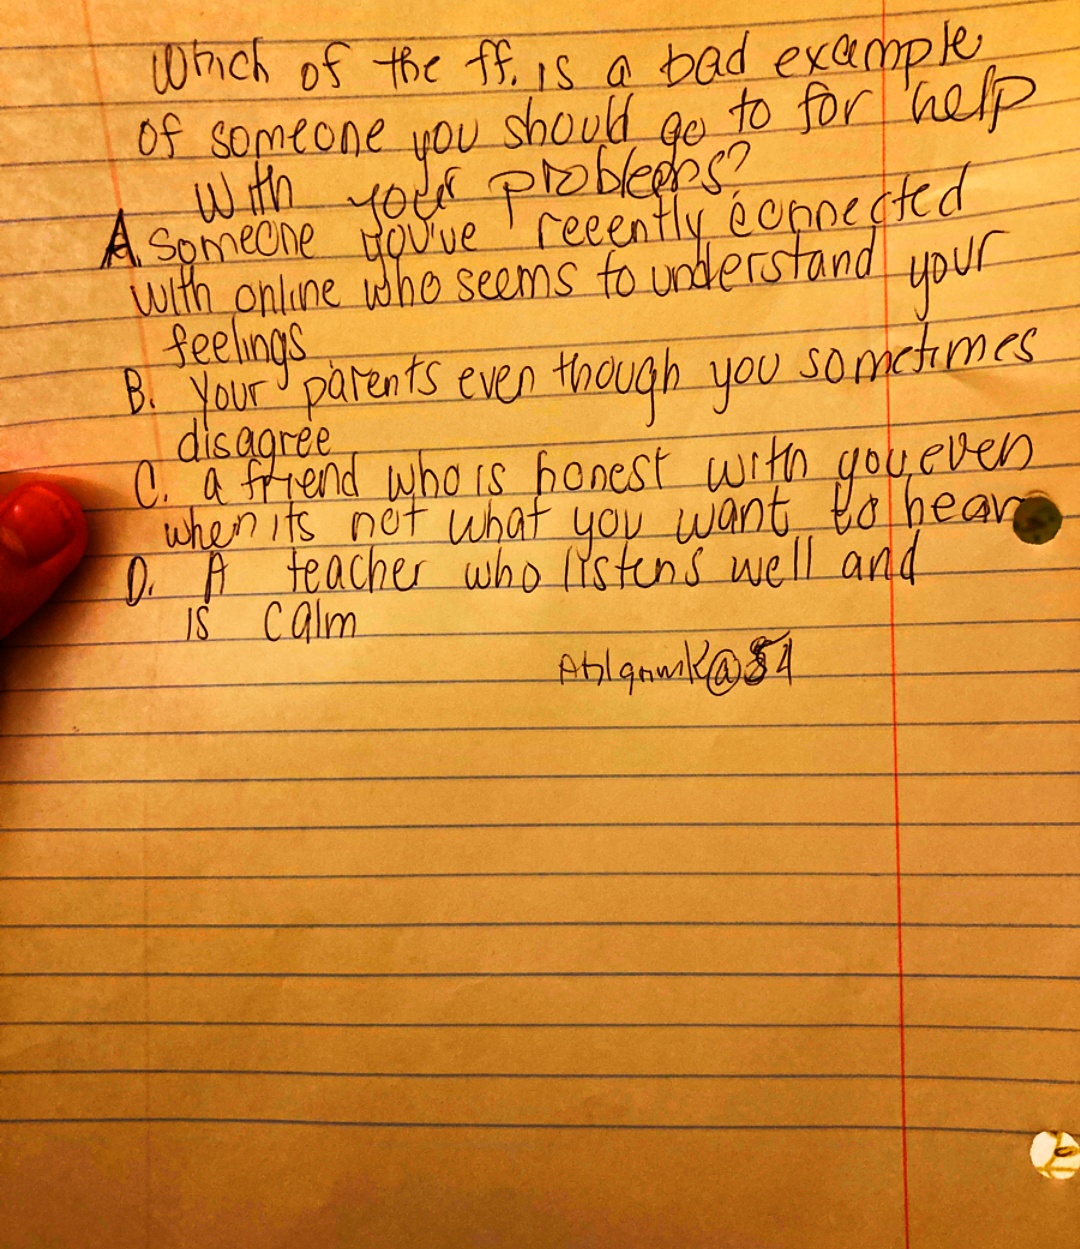 Which of the ff. is a bad example
of someone you should go to for help
with your problems?
A. Someone you've recently connected
with online who seems to understand your
feelings
B. Your parents even though you sometimes
disagree
C. a friend who is honest with you, even
when its not what you want to hear
D. A teacher who listens well and
is calm